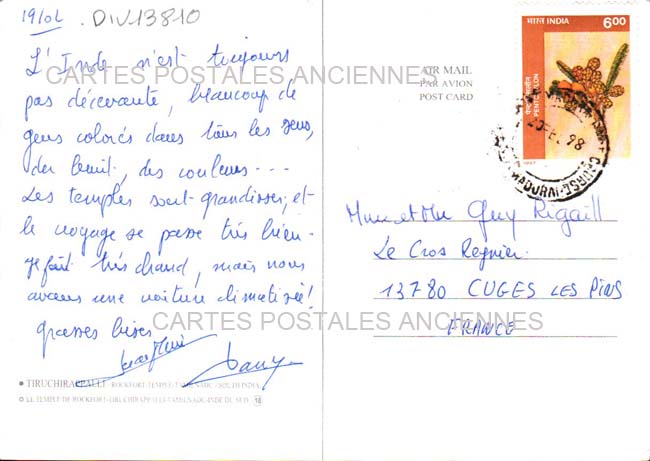 19/02
DIV13810
L'Inde n'est toujours
pas décevante, beaucoup de
gens colorés dans tous les sens,
du bruit, des couleurs ---
Les temples sont grandioses, et
le voyage se passe très bien.
il fait très chaud, mais nous
avons une voiture climatisée!
grosses bises
CARTES POSTALES ANCIENNES
CARTES POSTALES ANCIENNES
TIRUCHIRAPPALLI - ROCKFORT-TEMPLE-TAMILNADU-SOUTH INDIA
LE TEMPLE DE ROCKFORT-TIRUCHIRAPPALLI-TAMILNADU-INDE DU SUD 10
AIR MAIL
PAR AVION
POST CARD
भारत INDIA
6.00
PENTEMELON
1997
98
MADURAI
Mme et Mr Guy Rigaill
Le Cros Regnier
13780 CUGES LES PINS
FRANCE